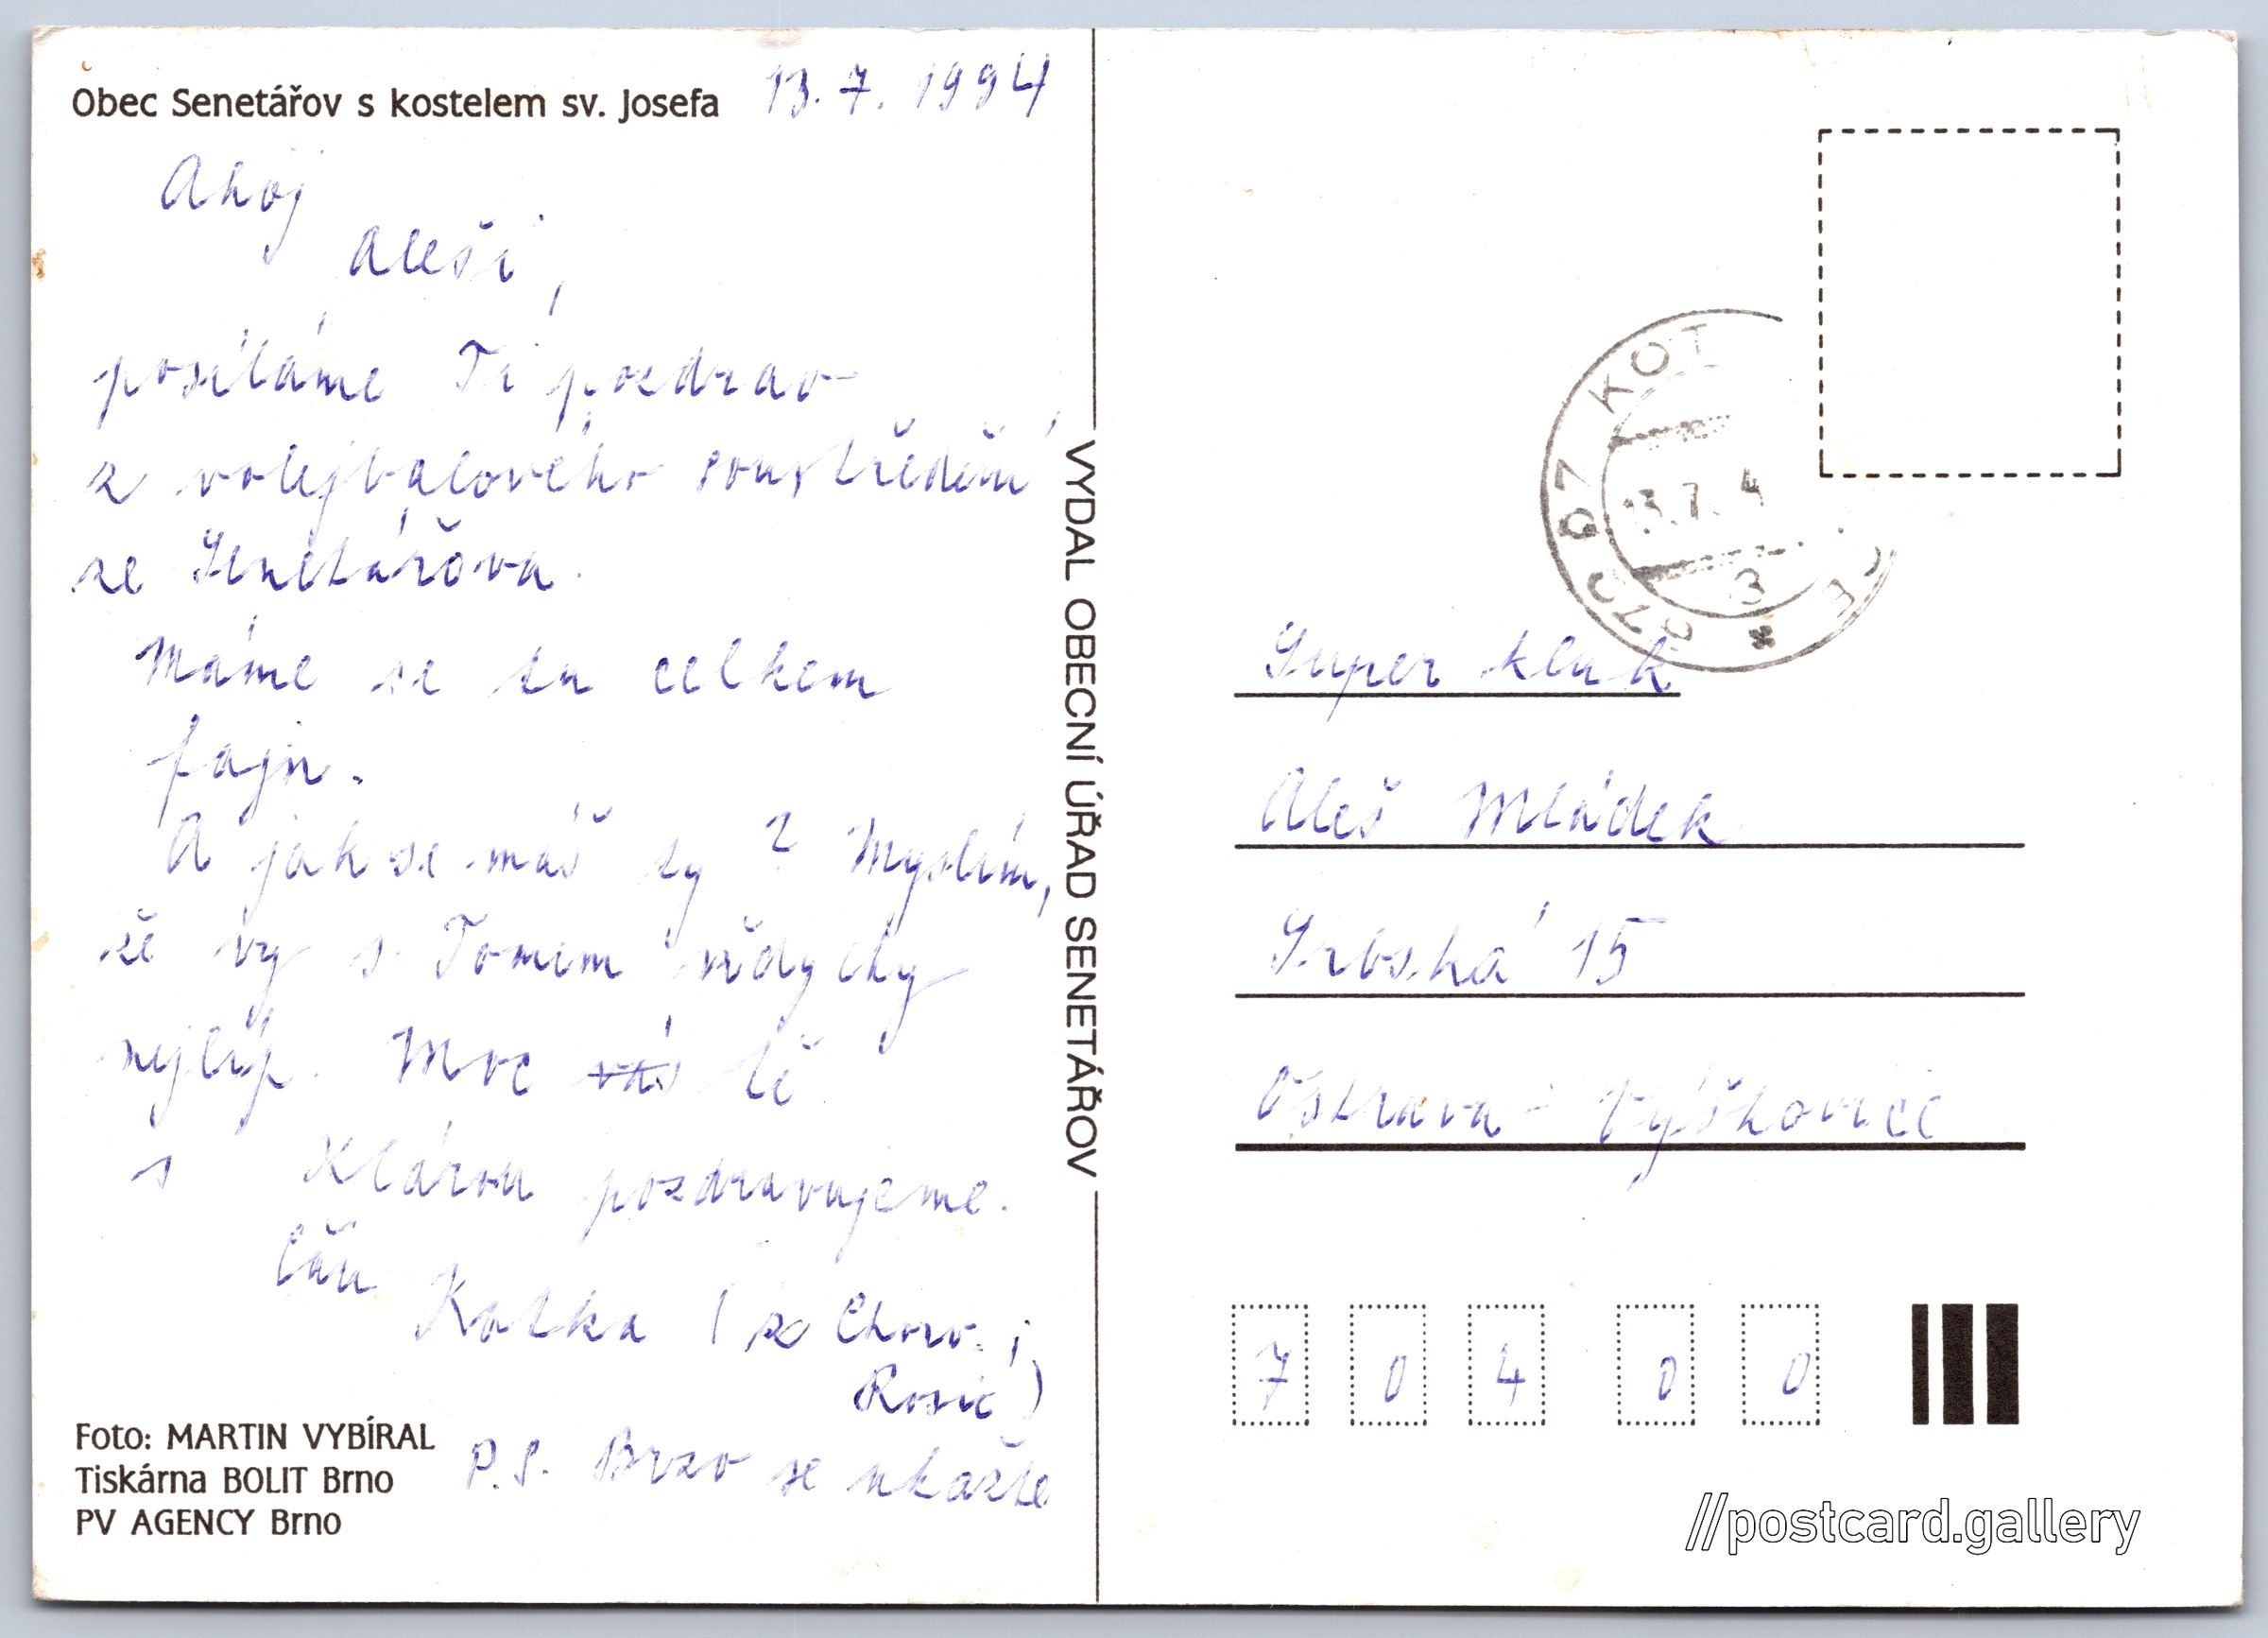 Obec Senetářov s kostelem sv. Josefa 13.7.1994
Ahoj
Aleši,
posíláme Ti pozdrav
z volejbalového soustředění
ze Senetářova.
Máme se tu celkem
fajn.
A jak se máš ty? Myslím,
že vy s Tomem vždycky
nejlíp. Moc vás tě
s Klárou pozdravujeme.
Čau
Katka (z Chorv. i
Rosic)
P.S. Brzo se ukažte
Foto: MARTIN VYBÍRAL
Tiskárna BOLIT Brno
PV AGENCY Brno
VYDAL OBECNÍ ÚŘAD SENETÁŘOV
679 07 KOT
13.7. 4
3
Super kluk
Aleš Mládek
Srbská 15
Ostrava - Výškovice
7 0 4 0 0
//postcard.gallery